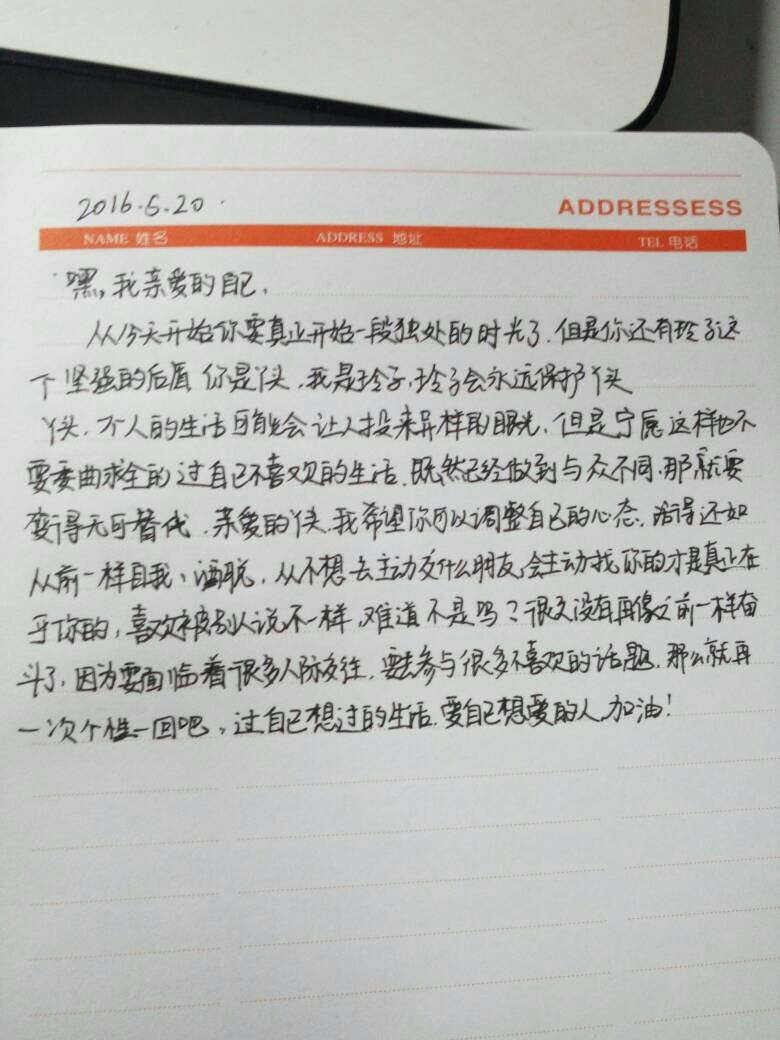 2016.5.20.
ADDRESSESS
NAME 姓名 ADDRESS 地址 TEL 电话
嘿,我亲爱的自己.
从今天开始你要真正开始一段独处的时光了.但是你还有玲子这
个坚强的后盾 你是丫头.我是玲子.玲子会永远保护丫头
丫头.个人的生活可能会让人投来异样的眼光.但是宁愿这样也不
要委曲求全的过自己不喜欢的生活.既然已经做到与众不同.那就要
变得无可替代.亲爱的丫头.我希望你可以调整自己的心态.活得还如
从前一样自我、洒脱.从不想去主动交什么朋友,会主动找你的才是真正在
乎你的,喜欢被别人说不一样,难道不是吗?很久没有再像之前一样奋
斗了.因为要面临着很多人际交往.要去参与很多不喜欢的话题.那么就再
一次个性一回吧,过自己想过的生活.爱自己想爱的人.加油!